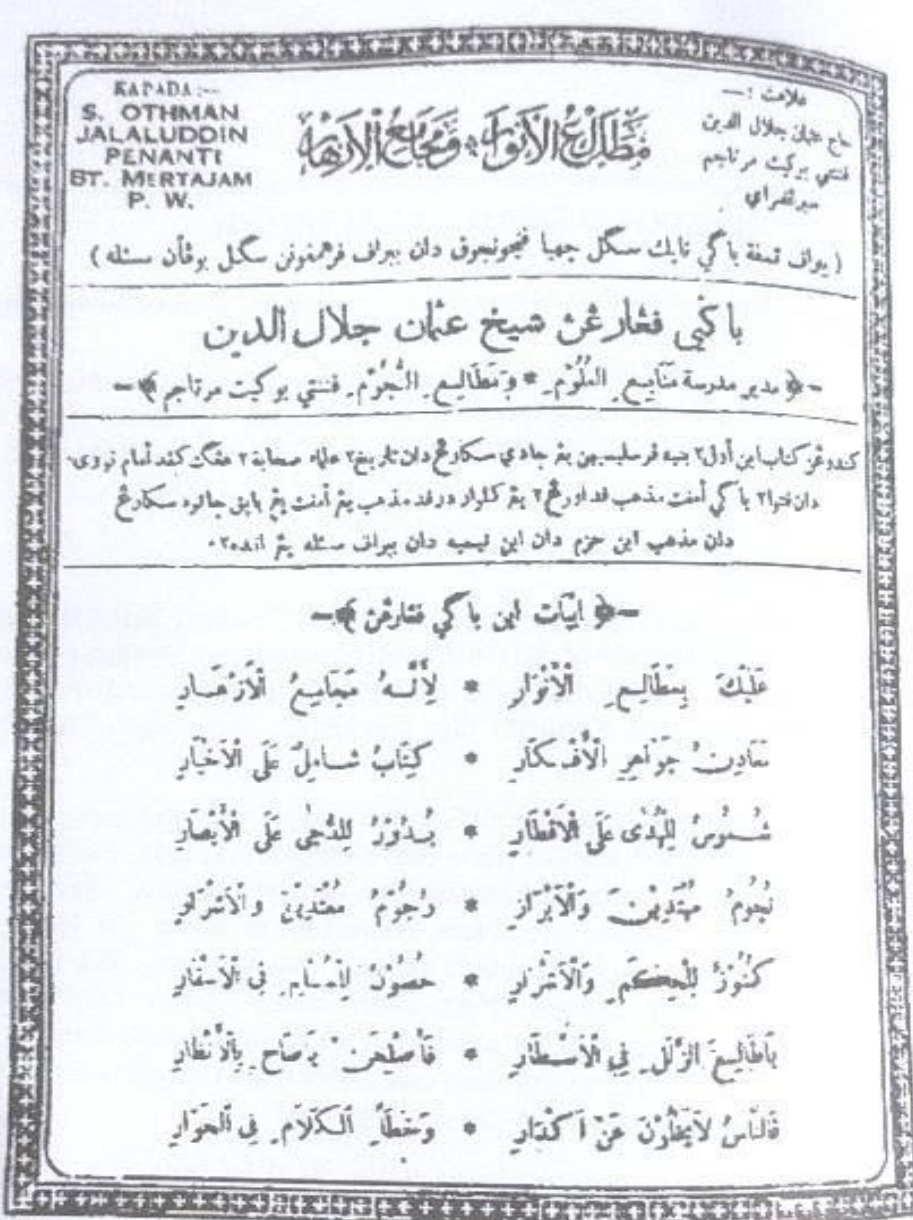 KAPADA :—
S. OTHMAN
JALALUDDIN
PENANTI
BT. MERTAJAM
P. W.
علامت :—
حاج عثمان جلال الدين
فننتي بوكيت مرتاجم
سبرڠفراي
مَطَالِعُ الْأَنْوَارِ وَمَجَامِعُ الْأَزْهَارِ
( ببراف تمفة باݢي نايك سݢل چهيا فوچوق دان ببراف فرهمفونن سݢل بوڠان مسئله )
باݢي ڤڠارڠن شيخ عثمان جلال الدين
﴿ مدير مدرسة مَنَابِيعِ الْعُلُوْمِ * وَمَطَالِيعِ النُّجُوْمِ ڤننتي بوكيت مرتاجم ﴾
كندوڠن كتاب اين أول٢ بڽ فرسليسيهن يڠ جادي سكارڠ دان تاريخ٢ علماء صحابة٢ هڠݢ كفد امام نووي
دان فتوا٢ باݢي أمفت مذهب فد اورڠ٢ يڠ كلوار درفد مذهب يڠ أمفت يڠ باڽق جالن٢ سكارڠ
دان مذهب ابن حزم دان ابن تيميه دان ببراف مسئله يڠ انده٢
﴿ ابيات اين باݢي ڤڠارڠن ﴾
عَلَيْكَ بِمَطَالِعِ الْأَنْوَارِ * لِأَنَّهُ مَجَامِيعُ الْأَزْهَارِ
مَعَادِنُ جَوَاهِرِ الْأَفْكَارِ * كِتَابٌ شَامِلٌ عَلَى الْأَخْيَارِ
شُمُوْسٌ لِلْهُدٰى عَلَى الْأَقْطَارِ * بُدُوْرٌ لِلدُّجٰى عَلَى الْأَبْصَارِ
نُجُومُ مُهْتَدِيْنَ وَالْأَبْرَارِ * وَجُومُ مُعْتَدِيْنَ وَالْأَشْرَارِ
كُنُوْزٌ لِلْحِكَمِ وَالْأَسْرَارِ * حُصُوْنٌ لِلْمُسْلِمِ فِى الْأَسْفَارِ
يَاطَالِعَ الزَّلَلِ فِى الْأَسْطَارِ * فَأَصْلِحَنْ يَاصَاحِ بِالْأَنْظَارِ
فَالنَّاسُ لَايَخْلُوْنَ عَنْ أَكْدَارِ * وَخَطَإِ الْكَلَامِ فِى الْحِوَارِ